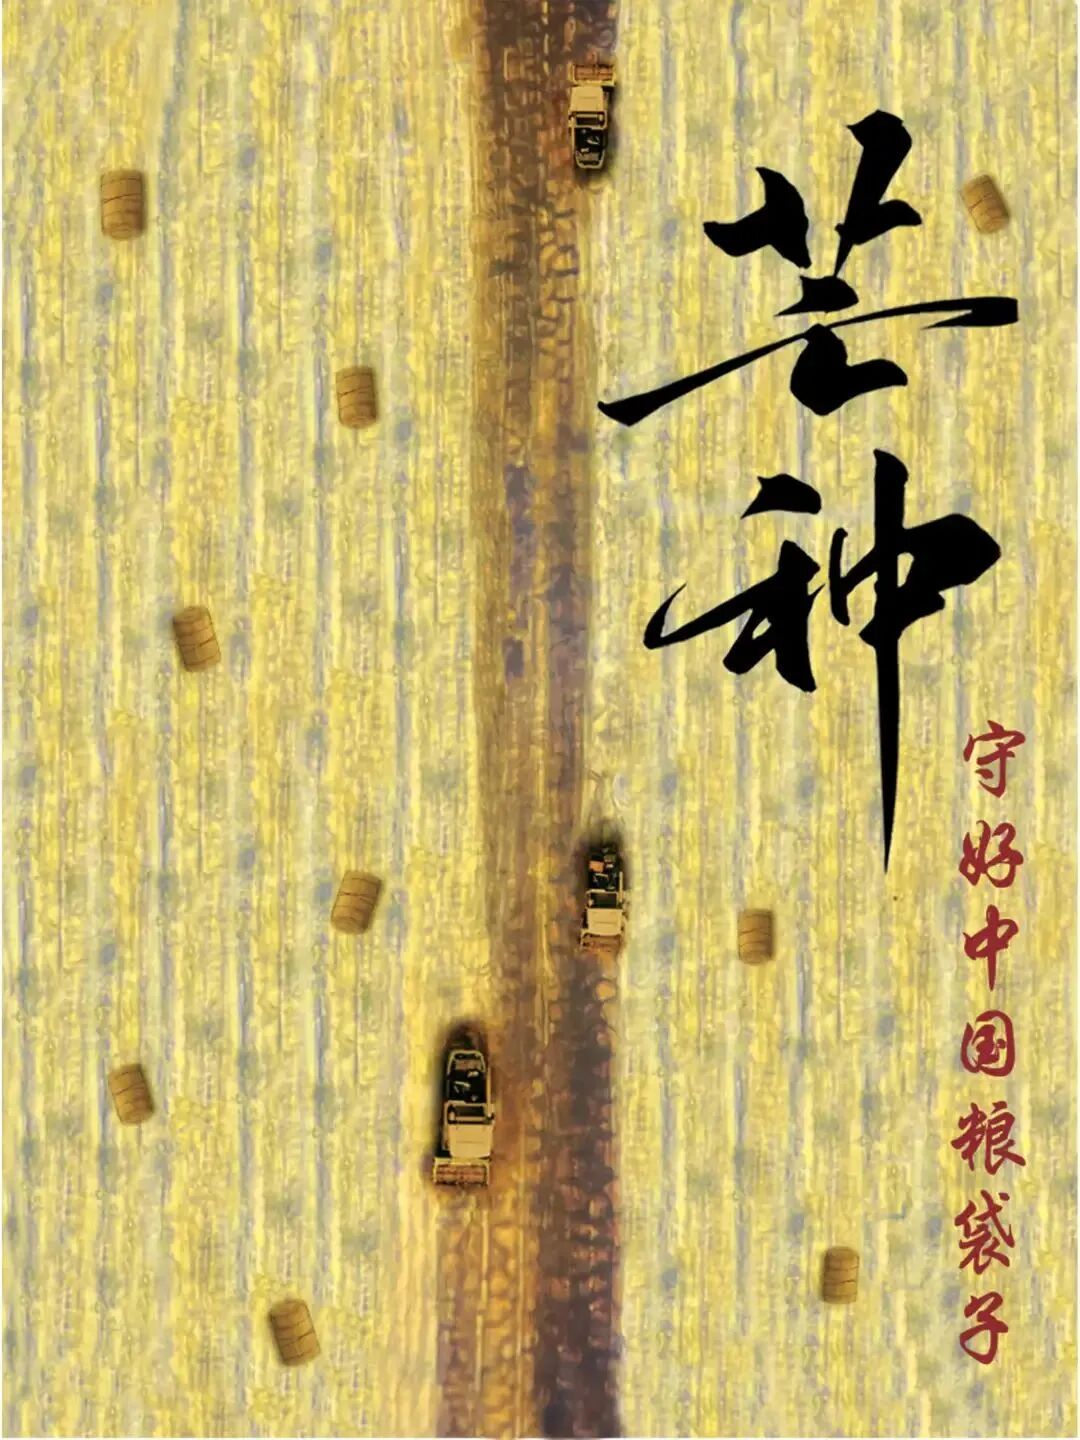 芒种
守好中国粮袋子